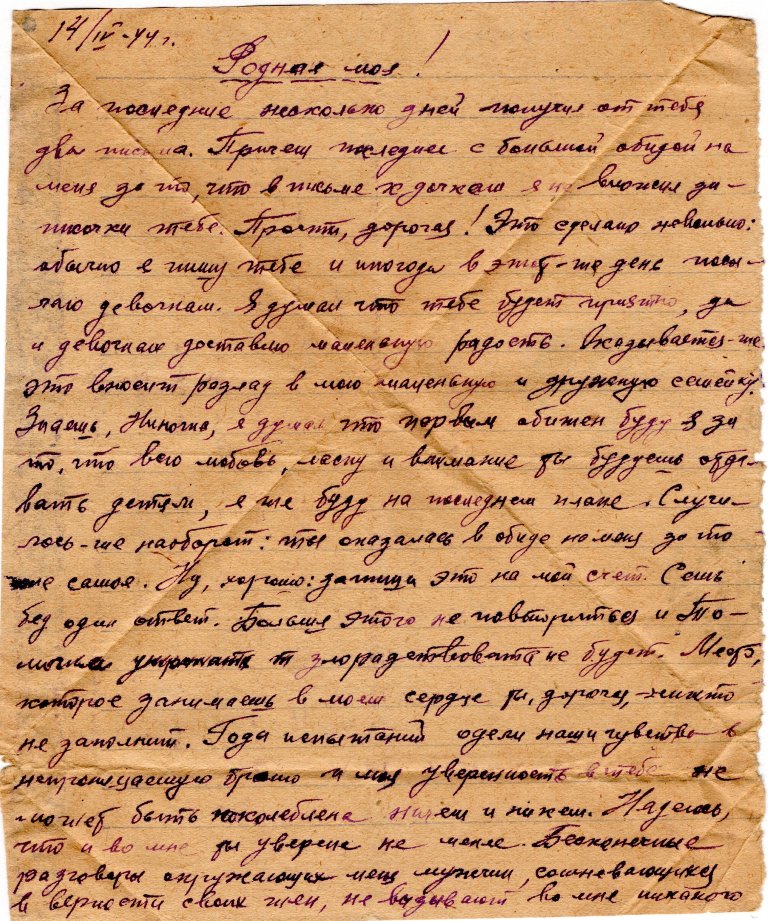 14/IV-44 г.
Родная моя!
За последние несколько дней получил от тебя
два письма. Причем последнее с большой обидой на
меня за то, что в письме к дочкам я не вложил за-
писочки тебе. Прости, дорогая! Это сделано невольно:
обычно я пишу тебе и иногда в этот-же день посы-
лаю девочкам. Я думал что тебе будет приятно, да
и девочкам доставлю маленькую радость. Оказывается-же
это вносит разлад в мою маленькую и дружную семейку.
Знаешь, Ниночка, я думал что первым обижен буду я за
то, что всю любовь, ласку и внимание ты будешь отда-
вать детям, я же буду на последнем плане. Случи-
лось-же наоборот: ты оказалась в обиде на меня за то
же самое. Ну, хорошо: запиши это на мой счет. Семь
бед один ответ. Больше этого не повторится и
злорадствовать не будет. Место,
которое занимаешь в моем сердце ты, дорогая, никто
не заполнит. Года испытаний одели наши чувства в
непроницаемую броню и моя уверенность в тебе не
может быть поколеблена ничем и никем. Надеюсь,
что и во мне ты уверена не менее. Бесконечные
разговоры окружающих меня мужчин, сомневающихся
в верности своих жен, не вызывают во мне никакого